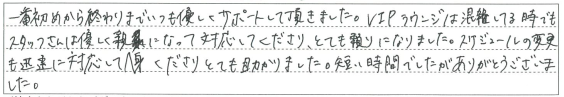 一番初めから終わりまでいつも優しくサポートして頂きました。VIPラウンジは混雑してる時でも
スタッフさんは優しく親身になって対応してくださり、とても頼りになりました。スケジュールの変更
も迅速に対応してくださりとても助かりました。短い時間でしたがありがとうございま
した。